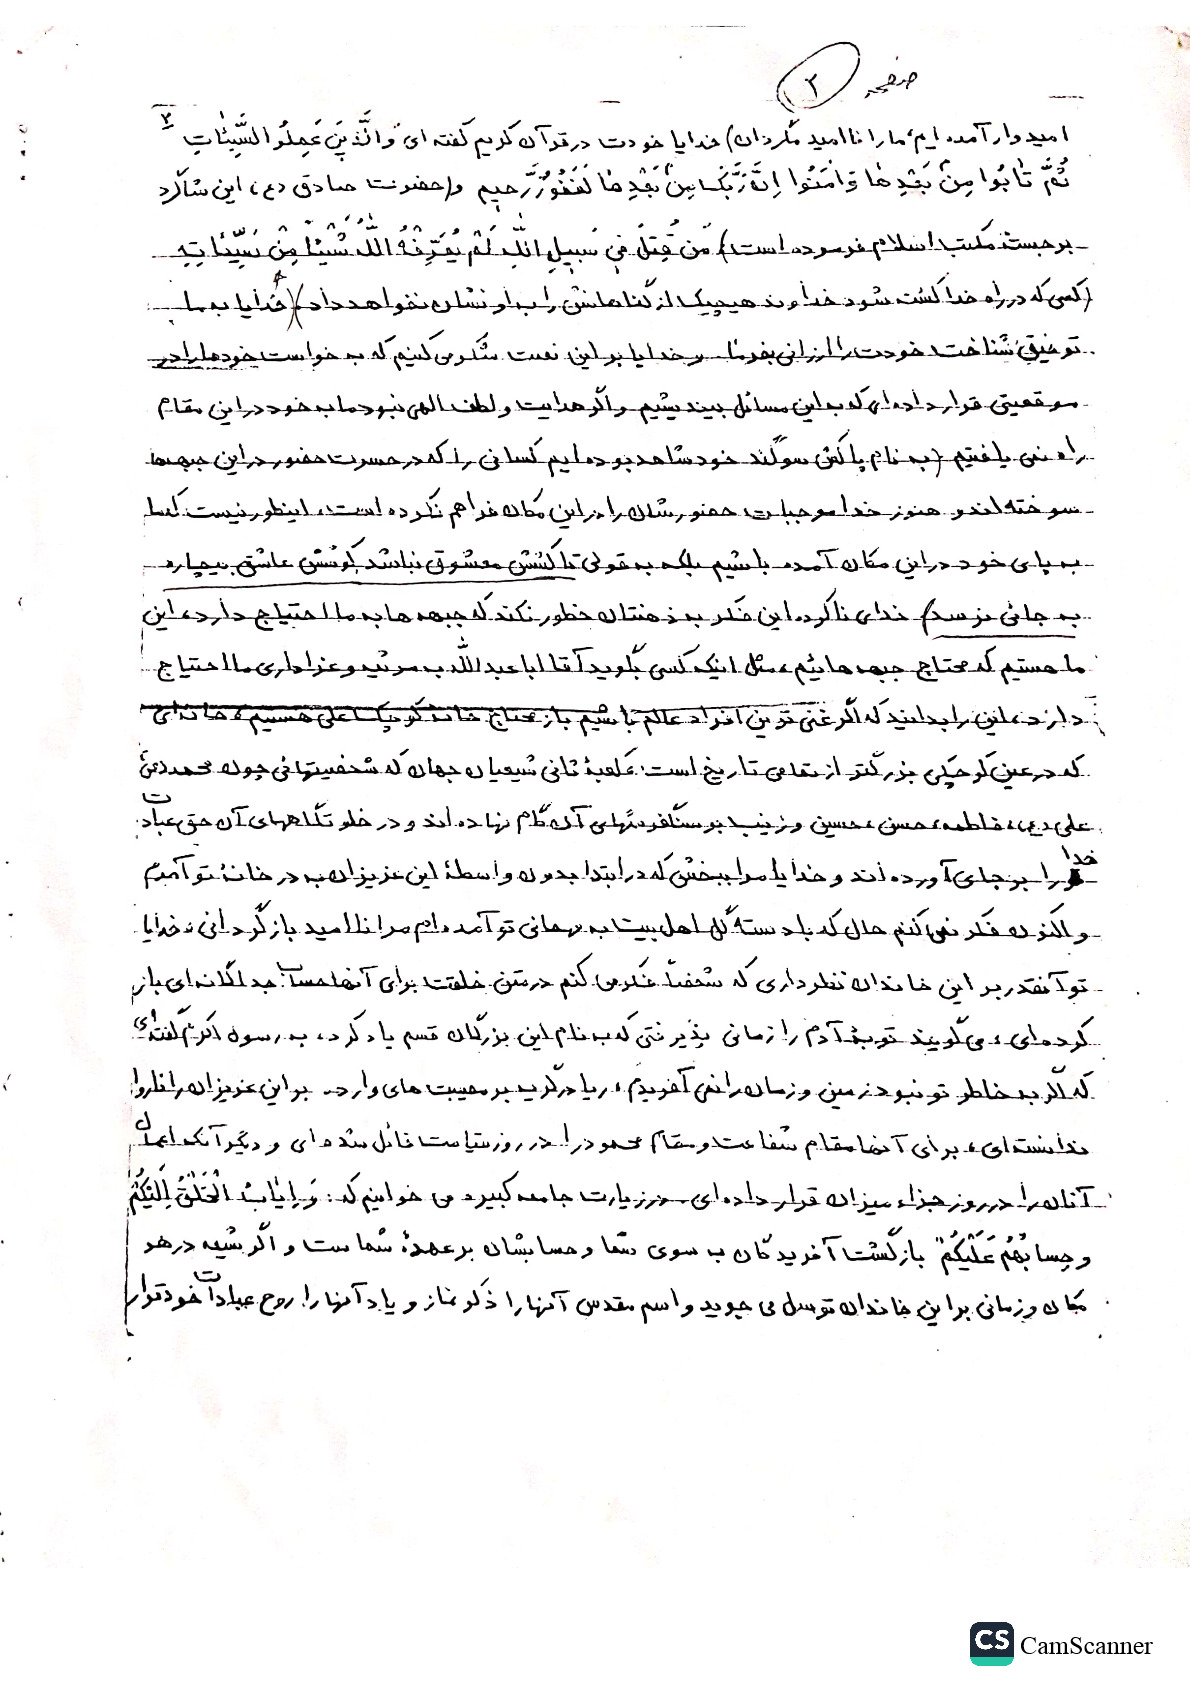 صفحه ۲
۲
امیدوار آمده ایم، ما را ناامید مگردان) خدایا خودت در قرآن کریم گفته ای وَالَّذینَ عَمِلُوا السَّیِّئاتِ
ثُمَّ تابُوا مِنْ بَعْدِها وَ امَنُوا اِنَّ رَبَّکَ مِنْ بَعْدِها لَغَفُورٌ رَحیم و (حضرت صادق (ع)، این شاگرد
برجسته مکتب اسلام فرموده است) مَن قُتِلَ فی سَبیلِ اللهِ لَمْ یُعَرِّفْهُ اللهُ شَیْئاً مِنْ سَیِّئاتِهِ
(کسی که در راه خدا کشته شود خداوند هیچیک از گناهانش را به او نشان نخواهد داد) (خدایا به ما
توفیق شناخت خودت را ارزانی بفرما و خدایا بر این نعمت شکر می کنیم که به خواست خود ما را در
موقعیتی قرار داده ای که به این مسائل بیندیشیم و اگر هدایت و لطف الهی نبود ما به خود در این مقام
راه نمی یافتیم (به نام پاکش سوگند خود شاهد بوده ایم کسانی را که در حسرت حضور در این جبهه ها
سوخته اند و هنوز خدا موجبات حضورشان را در این مکان فراهم نکرده است، اینطور نیست که ما
به پای خود در این مکان آمده باشیم بلکه به قولی تا کشش معشوق نباشد کوشش عاشق بیچاره
به جائی نرسد) خدای ناکرده این فکر به ذهنتان خطور نکند که جبهه ها به ما احتیاج دارد، این
ما هستیم که محتاج جبهه هائیم، مثل اینکه کسی بگوید آقا اباعبدالله به مرثیه و عزاداری ما احتیاج
دارد، این را بدانید که اگر غنی ترین افراد عالم باشیم باز محتاج خانه کوچک علی هستیم، خانه ای
که در عین کوچکی بزرگتر از تمامی تاریخ است، کعبهٔ ثانی شیعیان جهان که شخصیتهائی چون محمد (ص)
علی (ع)، فاطمه، حسن، حسین و زینب بر سنگفرشهای آن گام نهاده اند و در خلوتگاههای آن حق عبادت
خدا را بر جای آورده اند و خدایا مرا ببخش که در ابتدا بدون واسطهٔ این عزیزان به در خانهٔ تو آمدم
و اکنون فکر نمی کنم حال که با دسته گل اهل بیت به مهمانی تو آمده ام مرا ناامید بازگردانی، خدایا
تو آنقدر بر این خاندان نظر داری که شخصاً فکر می کنم در متن خلقت برای آنها حساب جداگانه ای باز
کرده ای، می گویند توبهٔ آدم را زمانی پذیرفتی که به نام این بزرگان قسم یاد کرد، به رسول اکرم گفته ای
که اگر به خاطر تو نبود زمین و زمان را نمی آفریدم، ریا در گریه بر مصیبت های وارده بر این عزیزان را ناروا
ندانسته ای، برای آنها مقام شفاعت و مقام محمود را در روز قیامت قائل شده ای و دیگر آنکه اعمال
آنان را در روز جزاء میزان قرار داده ای در زیارت جامعه کبیره می خوانیم که: وَ اِیابُ الْخَلْقُ اِلَیْکُمْ
و حِسابُهُم عَلَیْکُمْ" بازگشت آفریدگان به سوی شما و حسابشان بر عهدهٔ شماست و اگر شیعه در هر
مکان و زمانی بر این خاندان توسل می جوید و اسم مقدس آنها را ذکر نماز و یاد آنها را روح عبادات خود قرار
CS CamScanner